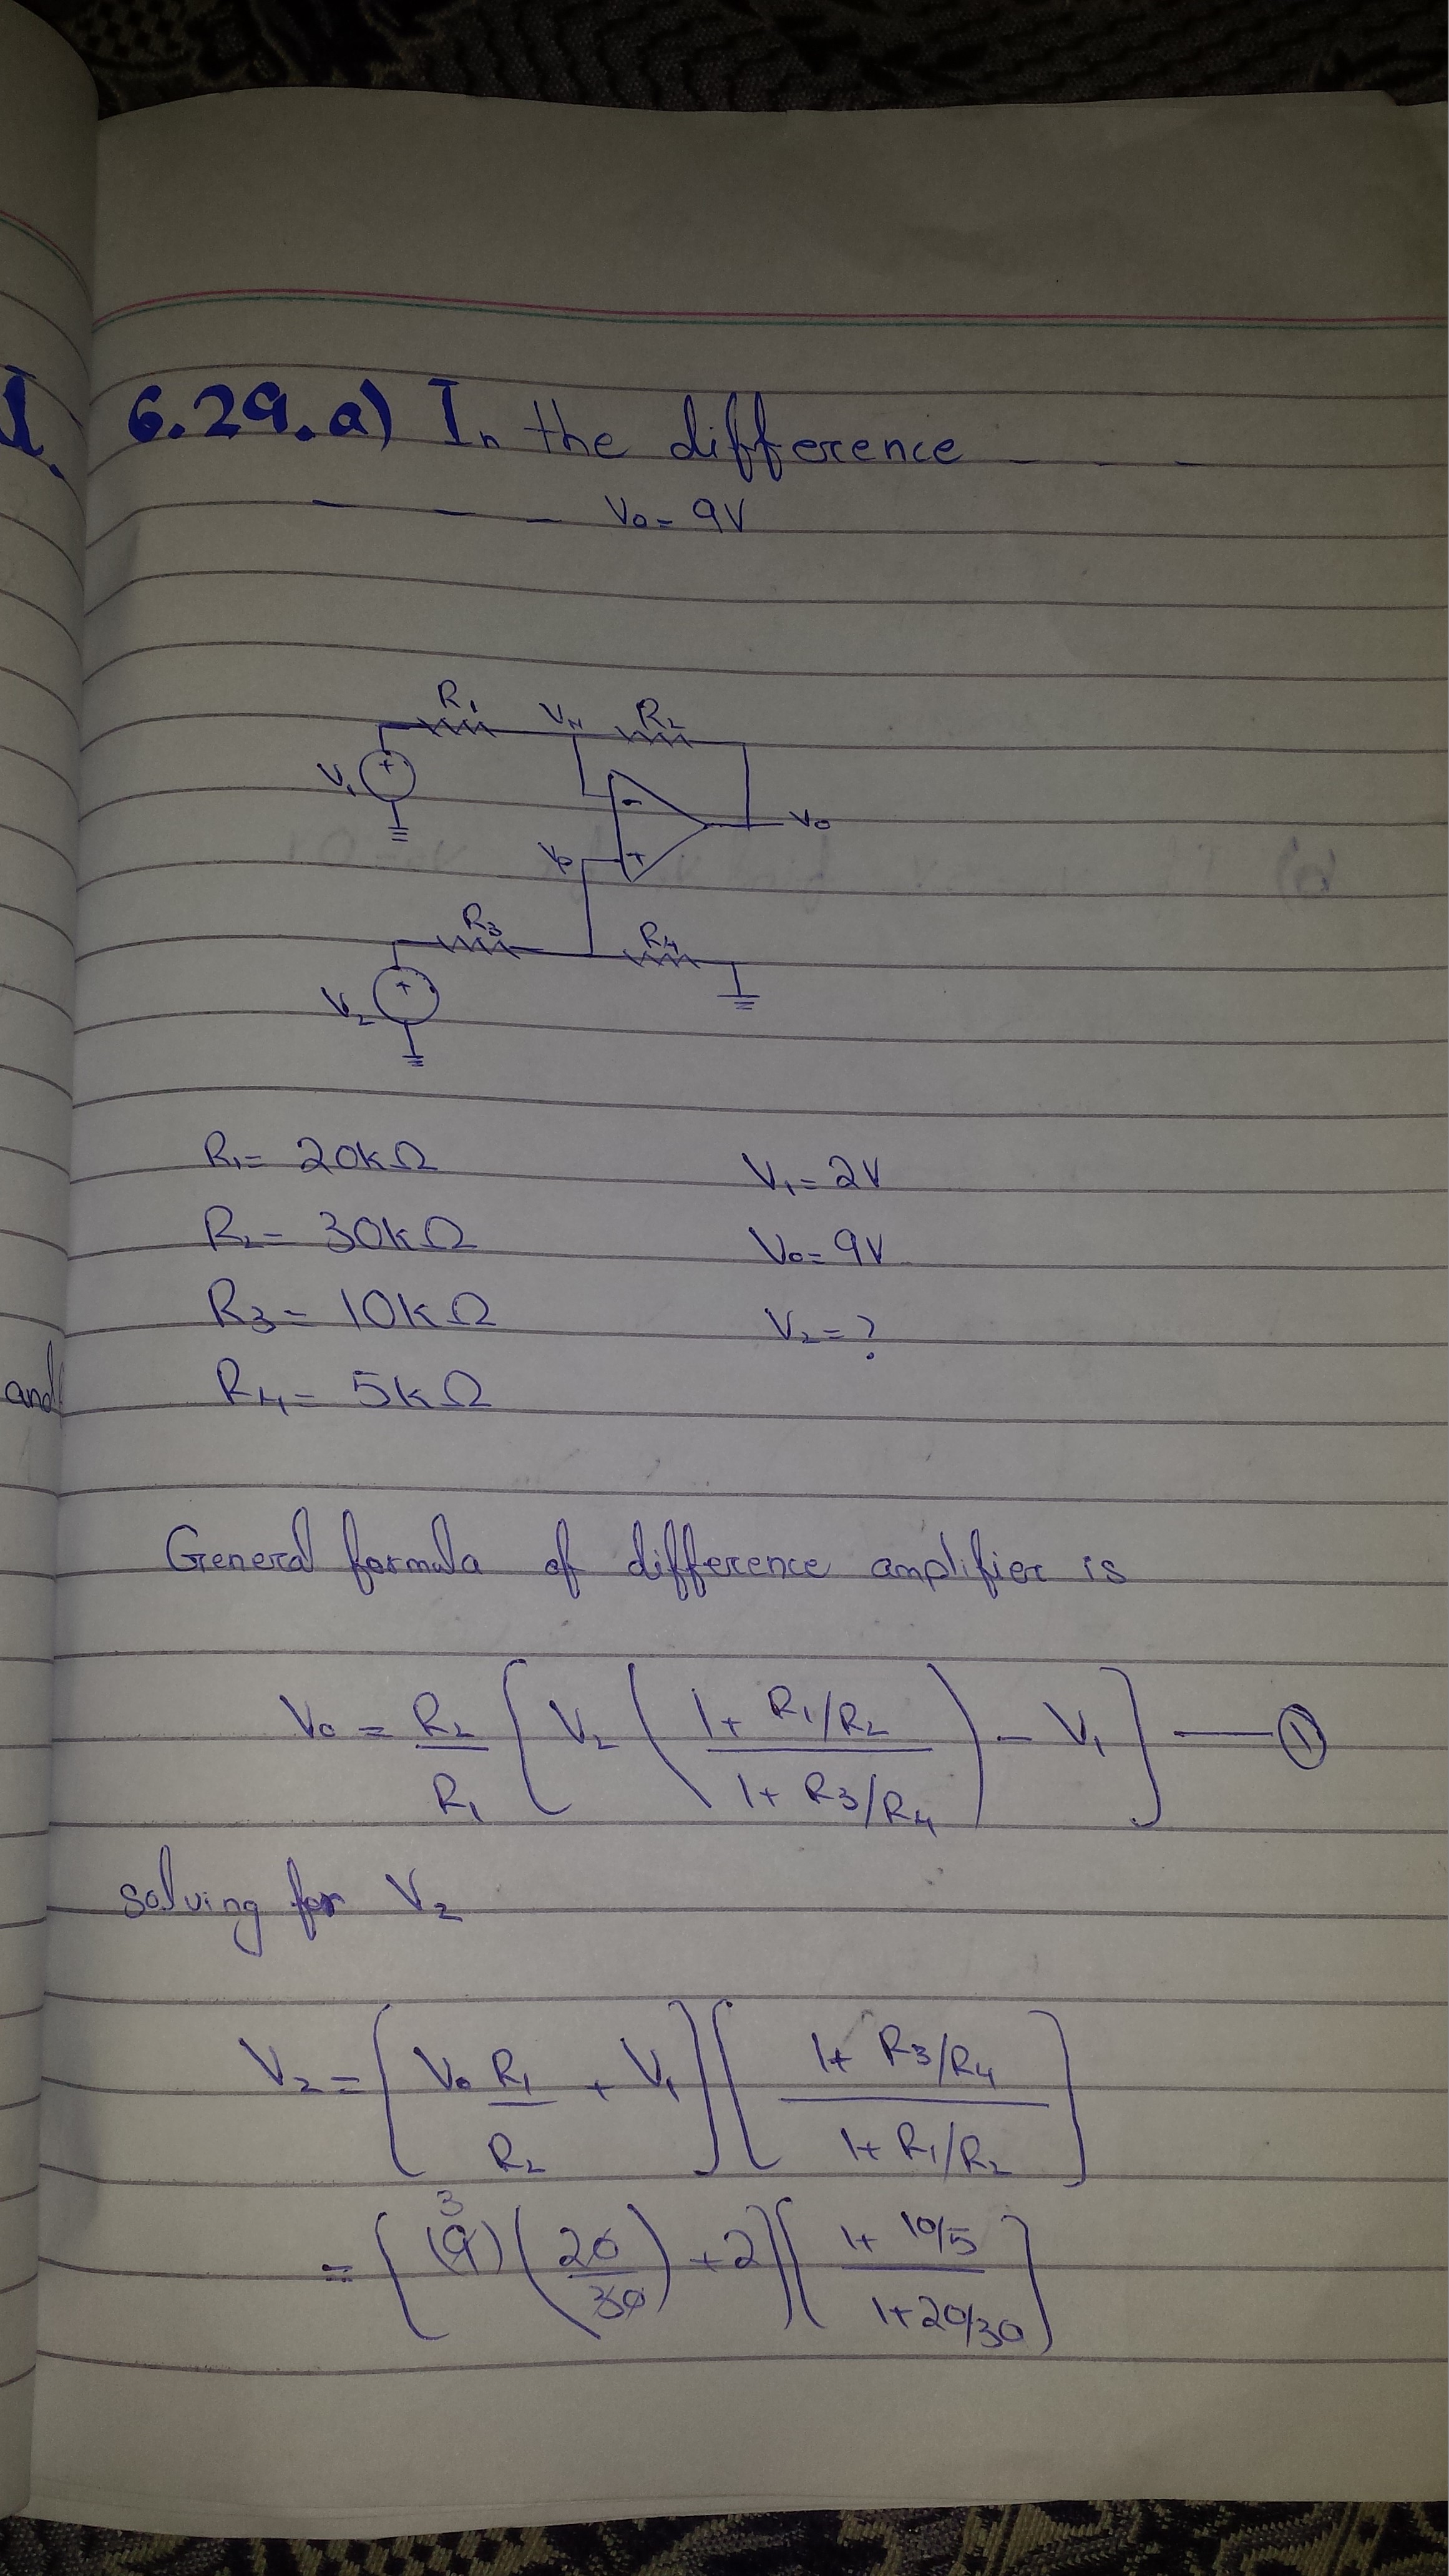 1.
6.29.a) In the difference - - -
- - - Vo = 9V
R1 VN R2
V1 + -
- Vo
VP +
R3 R4
V2 +
R1 = 20kΩ V1 = 2V
R2 = 30kΩ Vo = 9V
R3 = 10kΩ V2 = ?
R4 = 5kΩ
and
General formula of difference amplifier is
Vo = R2/R1 [ V2 ( (1 + R1/R2) / (1 + R3/R4) ) - V1 ] — ①
solving for V2
V2 = [ Vo R1/R2 + V1 ] [ (1 + R3/R4) / (1 + R1/R2) ]
= [ 3 (9) ( 20/30 ) + 2 ] [ (1 + 10/5) / (1 + 20/30) ]